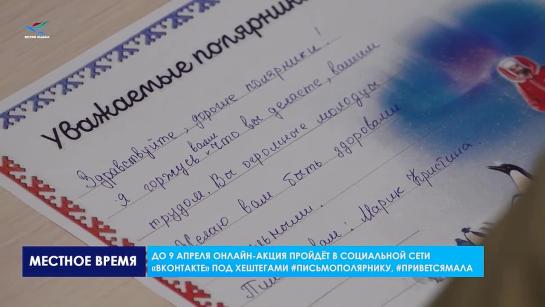 Уважаемые полярники
Здравствуйте, дорогие полярники!
Я горжусь вами, что вы делаете, вашим
трудом. Вы огромные молодцы
Желаю вам быть здоровыми
Марик Кристина.
МЕСТНОЕ ВРЕМЯ
ДО 9 АПРЕЛЯ ОНЛАЙН-АКЦИЯ ПРОЙДЁТ В СОЦИАЛЬНОЙ СЕТИ
«ВКОНТАКТЕ» ПОД ХЕШТЕГАМИ #ПИСЬМОПОЛЯРНИКУ, #ПРИВЕТСЯМАЛА